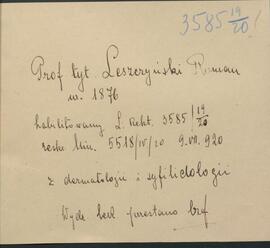 3585 19/20!
Prof tyt. Leszczyński Roman
ur. 1876
habilitowany L. Rekt. 3585/19/20
resk. Min. 5518/IV/20 9.VII.920
z dermatologii i syfilidologii
Wydz lek